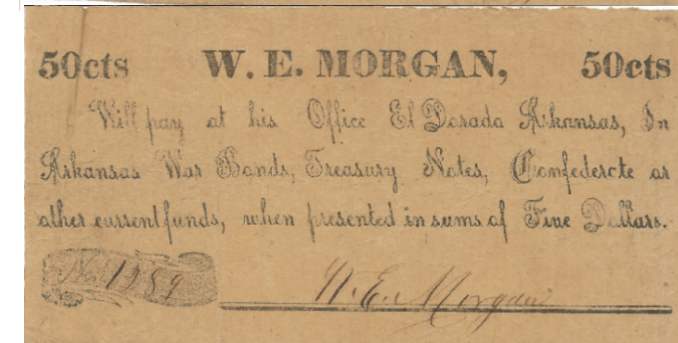 50cts W. E. MORGAN, 50cts
Will pay at his Office El Dorado Arkansas, In
Arkansas War Bonds, Treasury Notes, Confederate or
other current funds, when presented in sums of Five Dollars.
No. 1989
W. E. Morgan